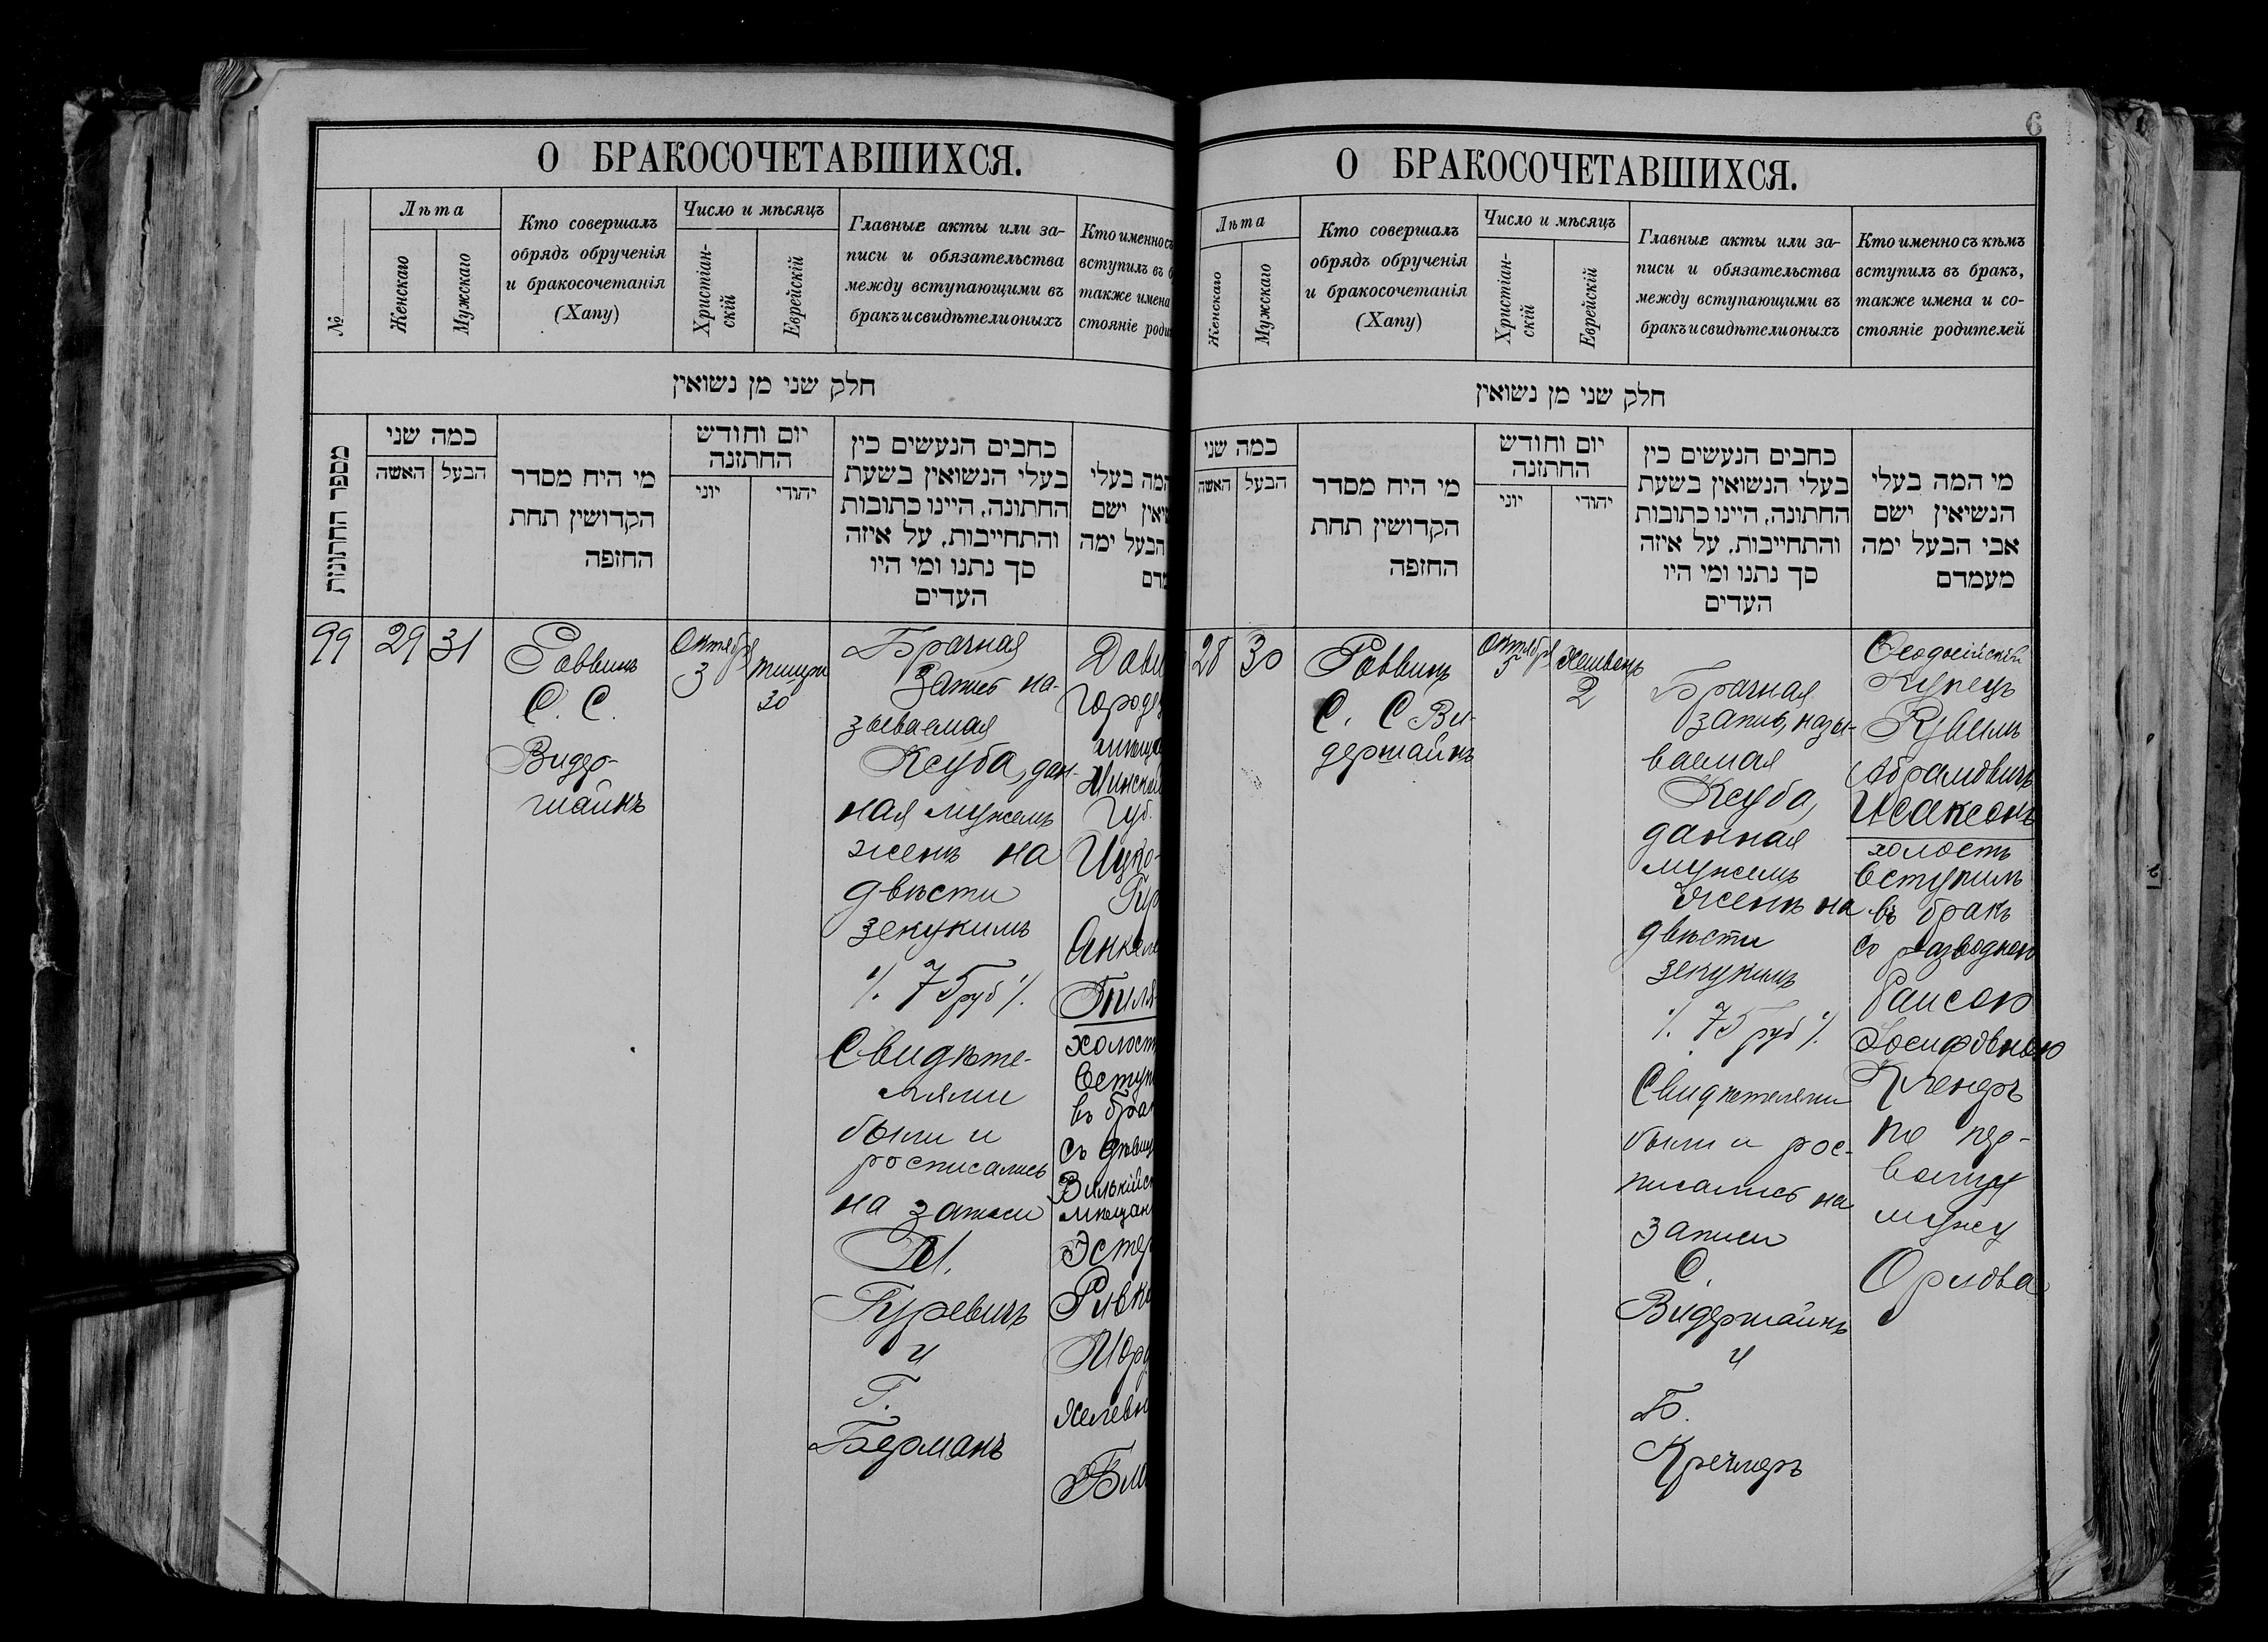 О БРАКОСОЧЕТАВШИХСЯ.
№
Лѣта
Женскаго
Мужскаго
Кто совершалъ
обрядъ обрученія
и бракосочетанія
(Хапу)
Число и мѣсяцъ
Христіан-
скій
Еврейскій
Главные акты или за-
писи и обязательства
между вступающими въ
бракъ и свидѣтели оныхъ
Кто именно съ
вступилъ въ б
также имена
стояніе роди
חלק שני מן נשואין
מספר החתונות
כמה שני
האשה
הבעל
מי היח מסדר
הקדושין תחת
החופה
יום וחודש
החתונה
יוני
יהודי
כתבים הנעשים בין
בעלי הנשואין בשעת
החתונה, היינו כתובות
והתחייבות, על איזה
סך נתנו ומי היו
העדים
המה בעלי
שיאין ישם
הבעל ימה
מדם
99
29
31
Раввинъ
С. С.
Видер-
шайнъ
Октября
3
Тишри
30
Брачная
Запись на-
зываемая
Ксуба, дан-
ная мужемъ
женѣ на
двѣсти
зекукимъ
٪ 75 руб ٪
Свидѣте-
лями
были и
росписались
на записи
М.
Гуревичъ
и
Г.
Берманъ
Дави
Городе
мѣща
Минской
Губ.
Ицко-
Гир
Анкел
холост
Вступ
въ бра
съ дѣвиц
Вилькійс
мѣщан
Эстер
Ривк
Морд
Хелевн
Бли
О БРАКОСОЧЕТАВШИХСЯ.
6
Лѣта
Женскаго
Мужскаго
Кто совершалъ
обрядъ обрученія
и бракосочетанія
(Хапу)
Число и мѣсяцъ
Христіан-
скій
Еврейскій
Главные акты или за-
писи и обязательства
между вступающими въ
бракъ и свидѣтели оныхъ
Кто именно съ кѣмъ
вступилъ въ бракъ,
также имена и со-
стояніе родителей
חלק שני מן נשואין
כמה שני
האשה
הבעל
מי היח מסדר
הקדושין תחת
החופה
יום וחודש
החתונה
יוני
יהודי
כתבים הנעשים בין
בעלי הנשואין בשעת
החתונה, היינו כתובות
והתחייבות, על איזה
סך נתנו ומי היו
העדים
מי המה בעלי
הנשיאין ישם
אבי הבעל ימה
מעמדם
28
30
Раввинъ
С. С Ви-
дершайнъ
Октября
5
Хешвонъ
2
Брачная
запись, назы-
ваемая
Ксуба,
данная
мужемъ
женѣ на
двѣсти
зекукимъ
٪ 75 руб ٪
Свидѣтелями
были и рос-
писались на
записи
С.
Видершайнъ
и
Б.
Кречмеръ
Ѳеодосійскій
Купецъ
Рувимъ
Абрамовичъ
Исаксонъ
холостъ
Вступилъ
въ бракъ
съ разводною
Раисою
Іосифовною
Кленеръ
по пер-
вому
мужу
Орлова